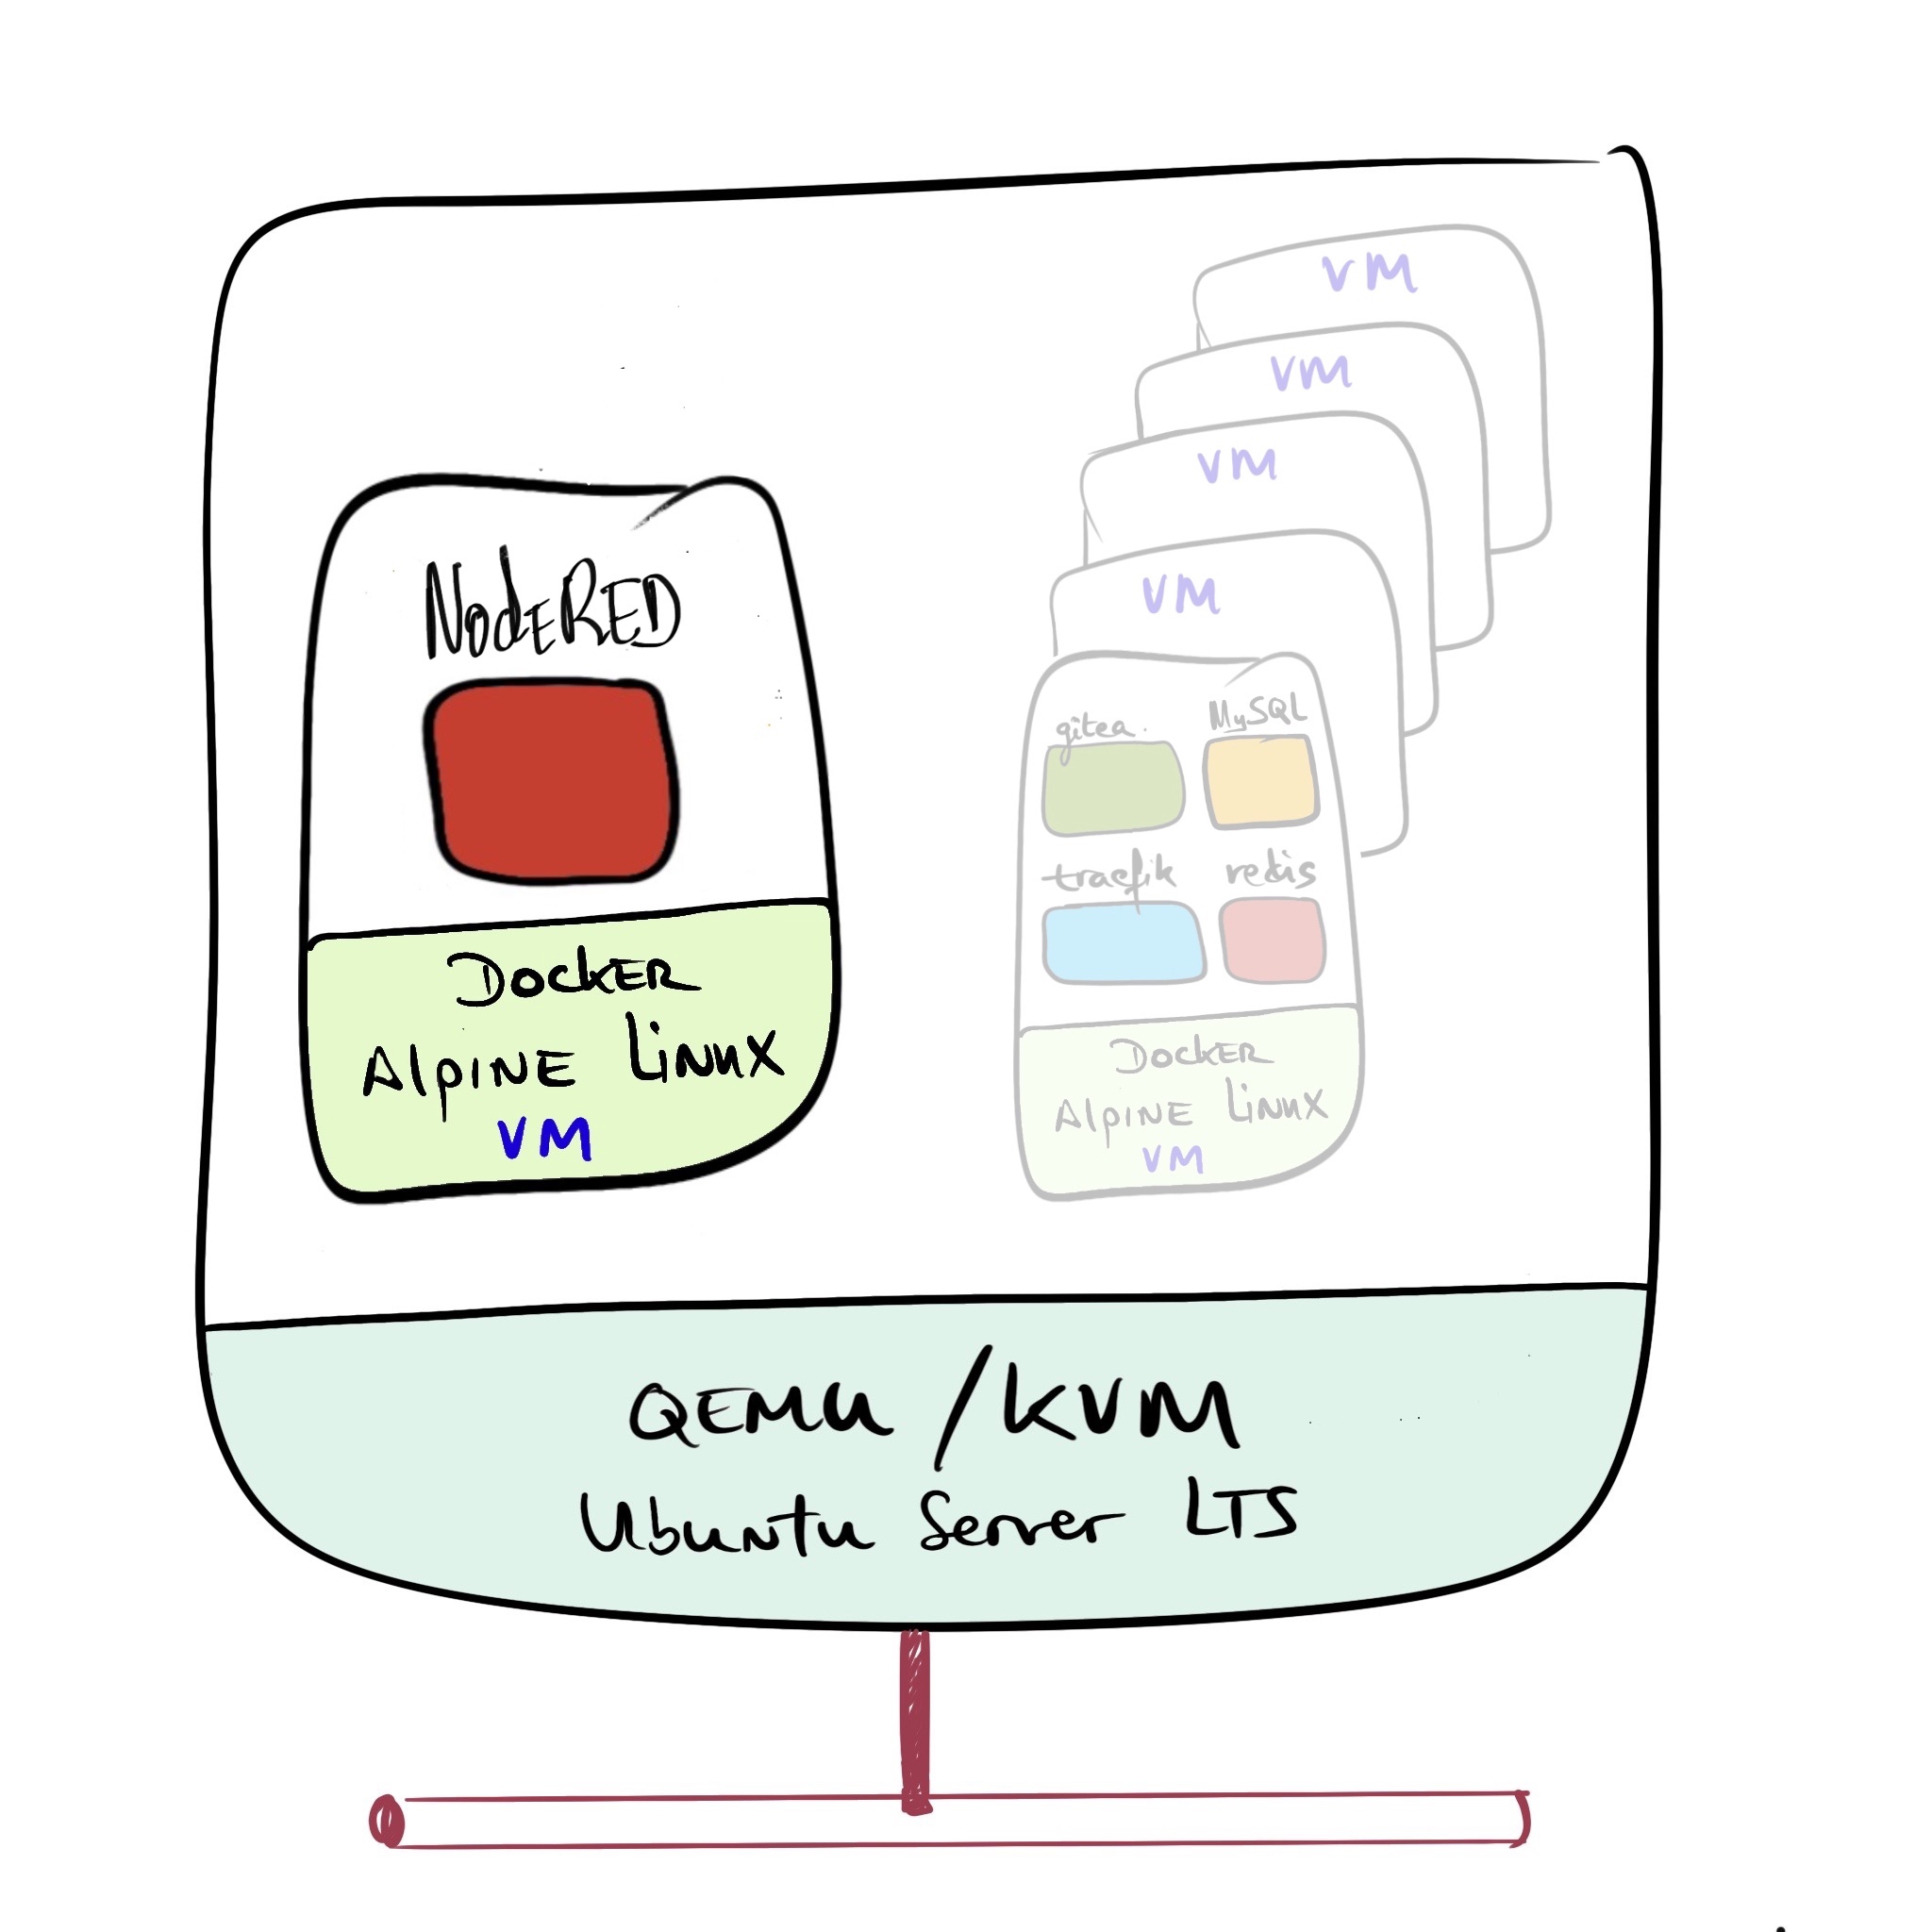 NodeRED
Docker
Alpine Linux
VM
VM
VM
VM
VM
gitea
MySQL
traefik
redis
Docker
Alpine Linux
VM
QEMU/KVM
Ubuntu Server LTS